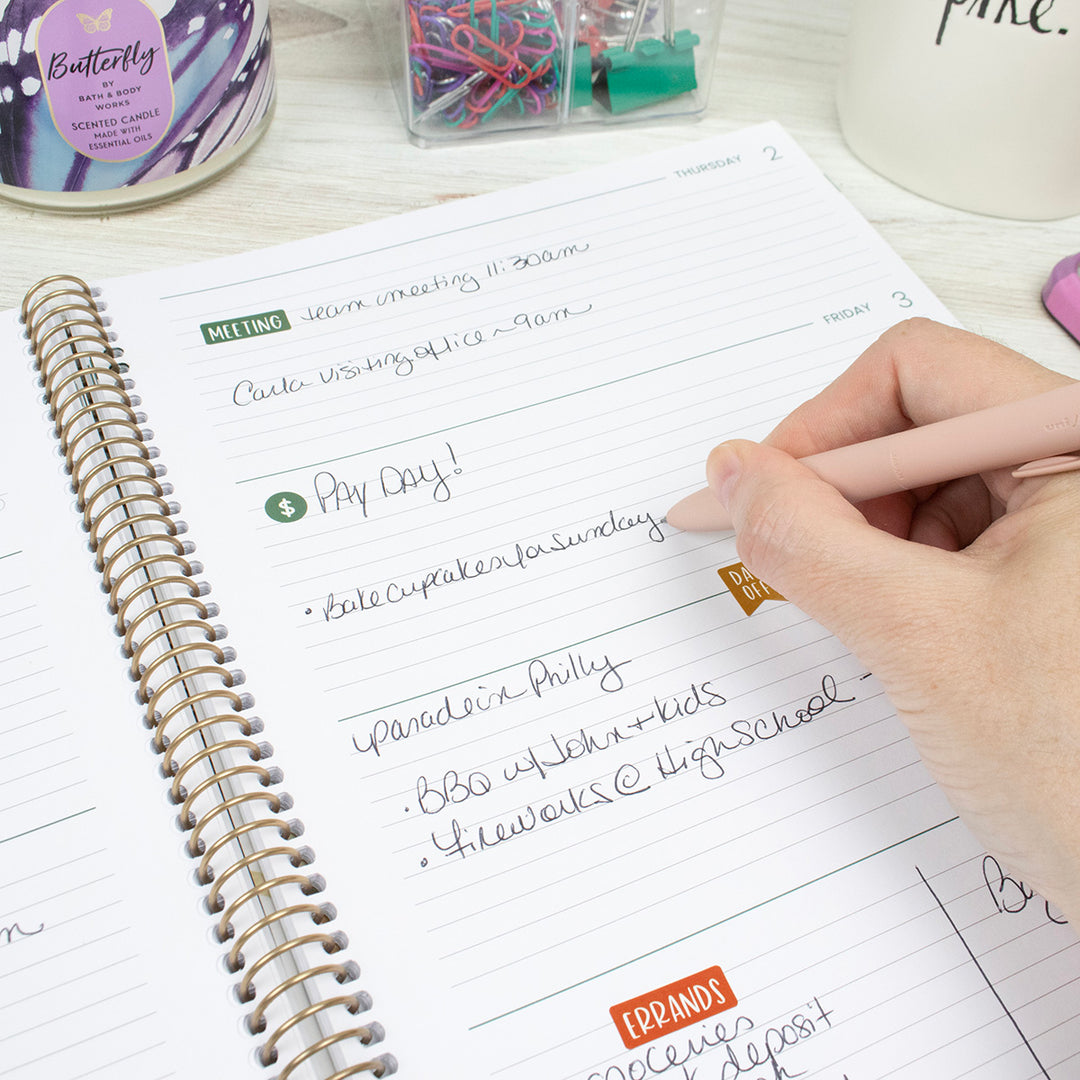 Butterfly
BY
BATH & BODY
WORKS
SCENTED CANDLE
MADE WITH
ESSENTIAL OILS
THURSDAY 2
MEETING team meeting 11:30am
Carla visiting office ~9am
FRIDAY 3
$ PAY DAY!
• Bake cupcakes for Sunday
DA
OFF
parade in Philly
• BBQ w/ John + kids
• Fireworks @ High School -
ERRANDS
groceries
deposit